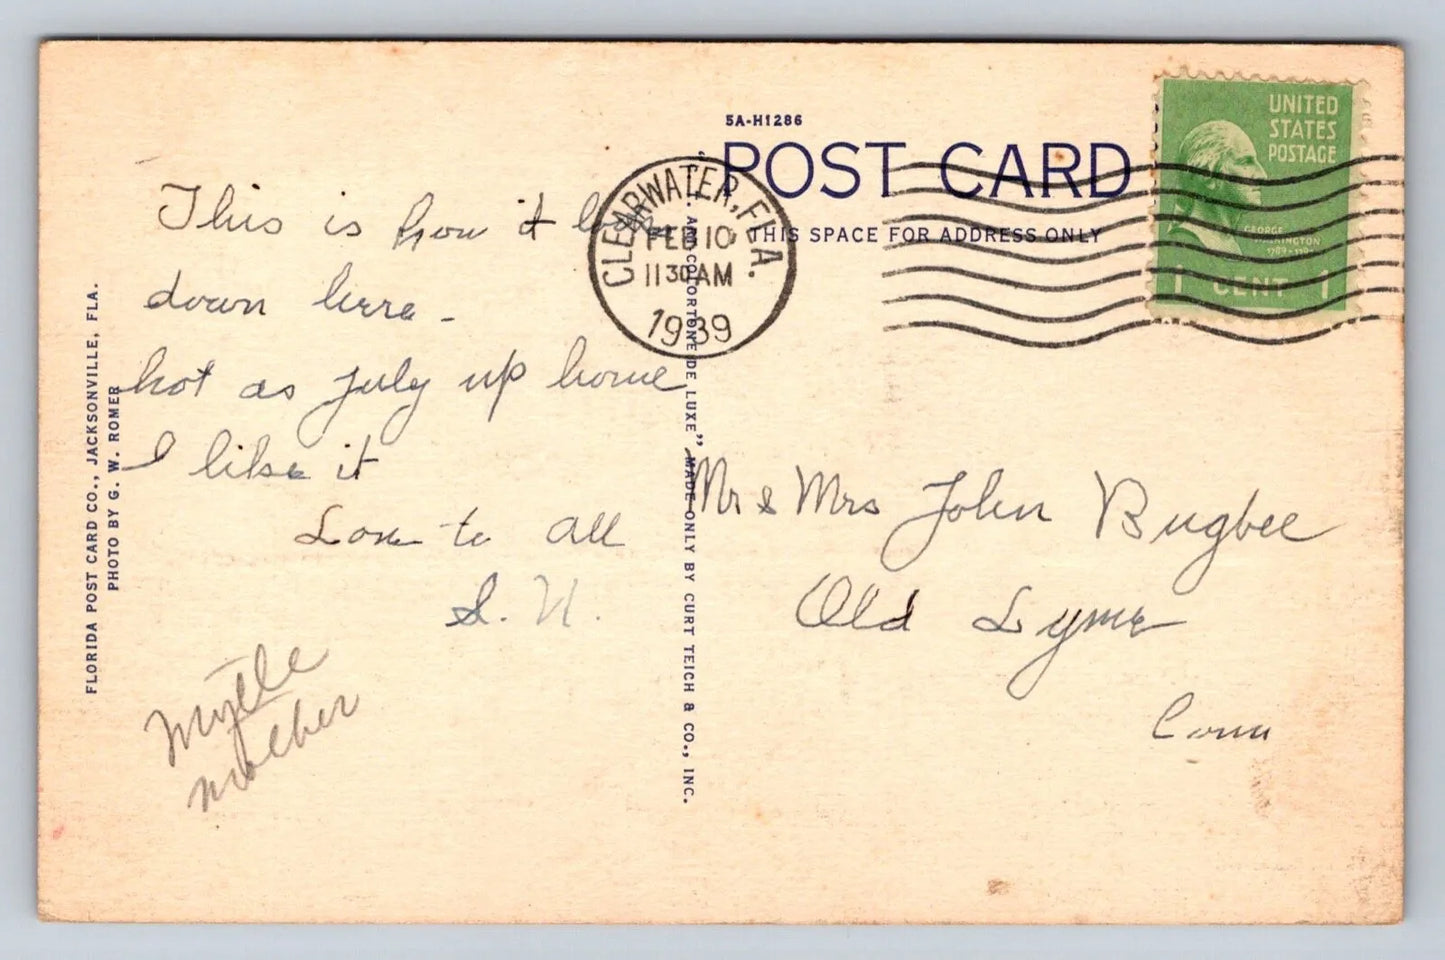 5A-H1286
POST CARD
THIS SPACE FOR ADDRESS ONLY
UNITED
STATES
POSTAGE
GEORGE
WASHINGTON
1 CENT 1
CLEARWATER, FLA.
FEB 10
11 30 AM
1939
This is how it
down here -
hot as July up home
I like it
Love to all
Myrtle
mother
Mr & Mrs John Bugbee
Old Lyme
Conn
FLORIDA POST CARD CO., JACKSONVILLE, FLA.
PHOTO BY G. W. ROMER
COLORTONE DE LUXE” MADE ONLY BY CURT TEICH & CO., INC.